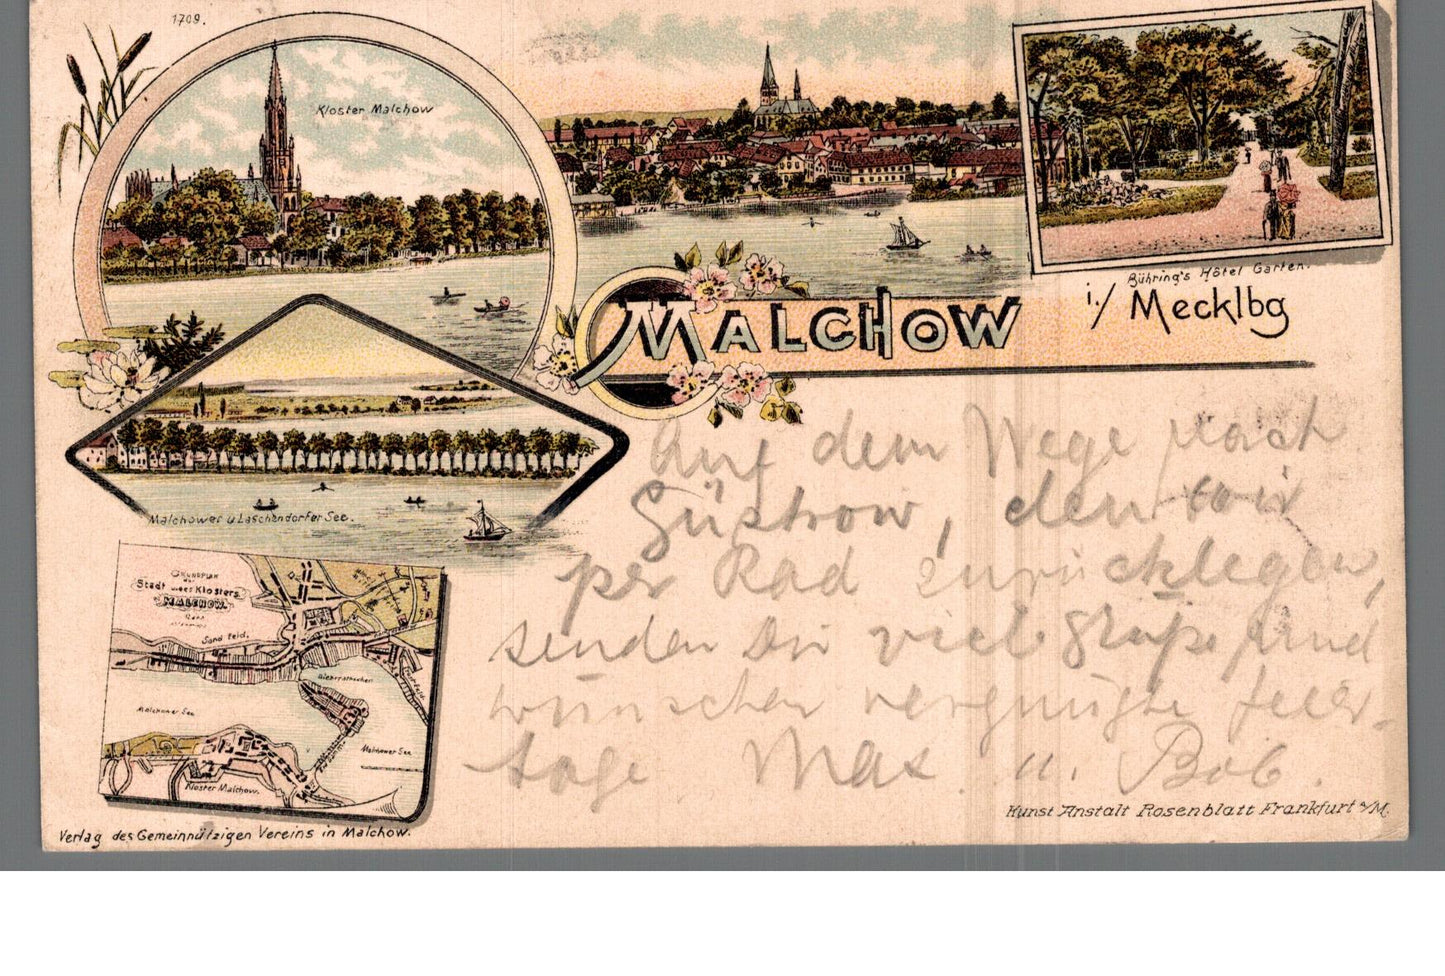 1709.
Kloster Malchow
Bühring's Hôtel Garten.
MALCHOW i./ Mecklbg
Malchower u Laschendorfer See.
Auf dem Wege nach
Güstrow, den wir
per Rad zurücklegen,
senden Dir viele Grüße und
wünschen vergnügte Feier-
tage Max u. Bob.
GRUNDPLAN
der
Stadt u. des Klosters
MALCHOW.
Sand feld.
Malchower See
Malchower See
Kloster Malchow.
Kunst Anstalt Rosenblatt Frankfurt a/M.
Verlag des Gemeinnützigen Vereins in Malchow.